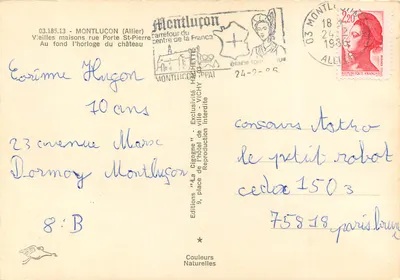 03.185.13 - MONTLUCON (Allier)
Vieilles maisons rue Porte St-Pierre
Au fond l'horloge du château
Montluçon
carrefour du
centre de la France
MONTLUCON
24-2-86
03 MONTLU
18
24-
ALLIER
2,20
Corinne Hugon
10 ans
23 avenue Marx
Dormoy Montluçon
8:B
Editions "La Cigogne" - Exclusivité
9, place de l'hôtel de ville - VICHY
Reproduction interdite
concours Astro
le petit robot
cedex 1503
75818 paris brune
Couleurs
Naturelles